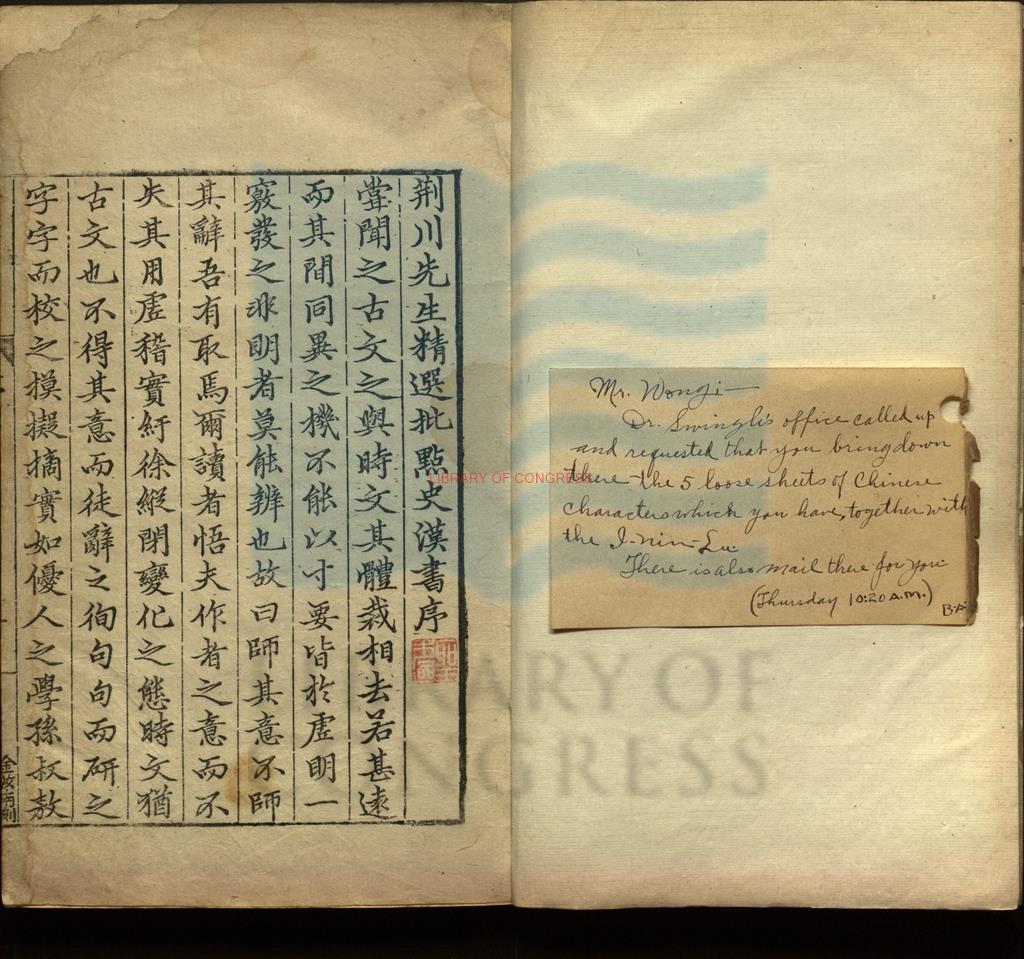 荆川先生精選批點史漢書序
甞聞之古文之與時文其體裁相去若甚遠
而其間同異之機不能以寸要皆於虗明一
竅發之非明者莫能辨也故曰師其意不師
其辭吾有取焉爾讀者悟夫作者之意而不
失其用虗稽實紆徐縱閉變化之態時文猶
古文也不得其意而徒辭之徇句句而研之
字字而校之摸擬摘實如優人之學孫叔敖
Mr. Wongi—
Dr. Swingli's office called up
and requested that you bring down
there the 5 loose sheets of Chinese
characters which you have, together with
the I-nin-Lu.
There is also mail there for you
(Thursday 10:20 A.M.)
LIBRARY OF CONGRESS
LIBRARY OF
CONGRESS